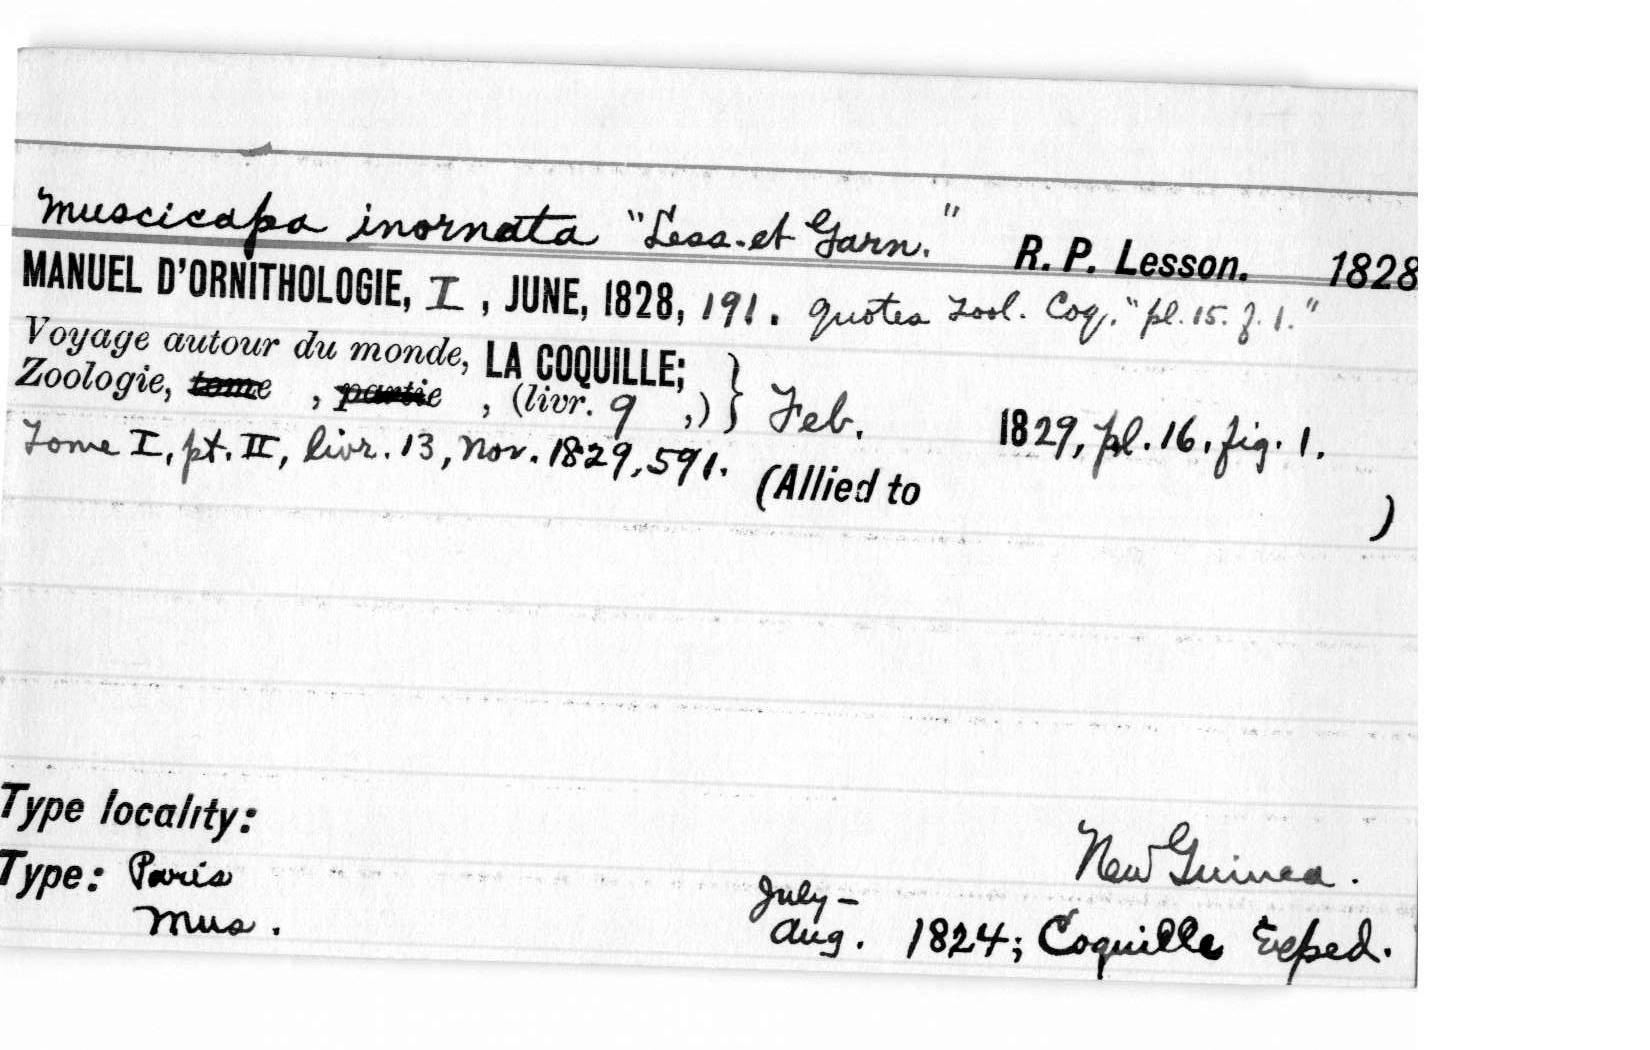 Muscicapa inornata "Less. et Garn." R. P. Lesson. 1828
MANUEL D'ORNITHOLOGIE, I, JUNE, 1828, 191. quotes Zool. Coq. "pl. 15. f. 1."
Voyage autour du monde, LA COQUILLE;
Zoologie, tome , partie , (livr. 9 ,) } Feb. 1829, pl. 16, fig. 1.
Tome I, pt. II, livr. 13, Nov. 1829, 591.
(Allied to )
Type locality: New Guinea.
Type: Paris July-
Mus. Aug. 1824; Coquille Exped.